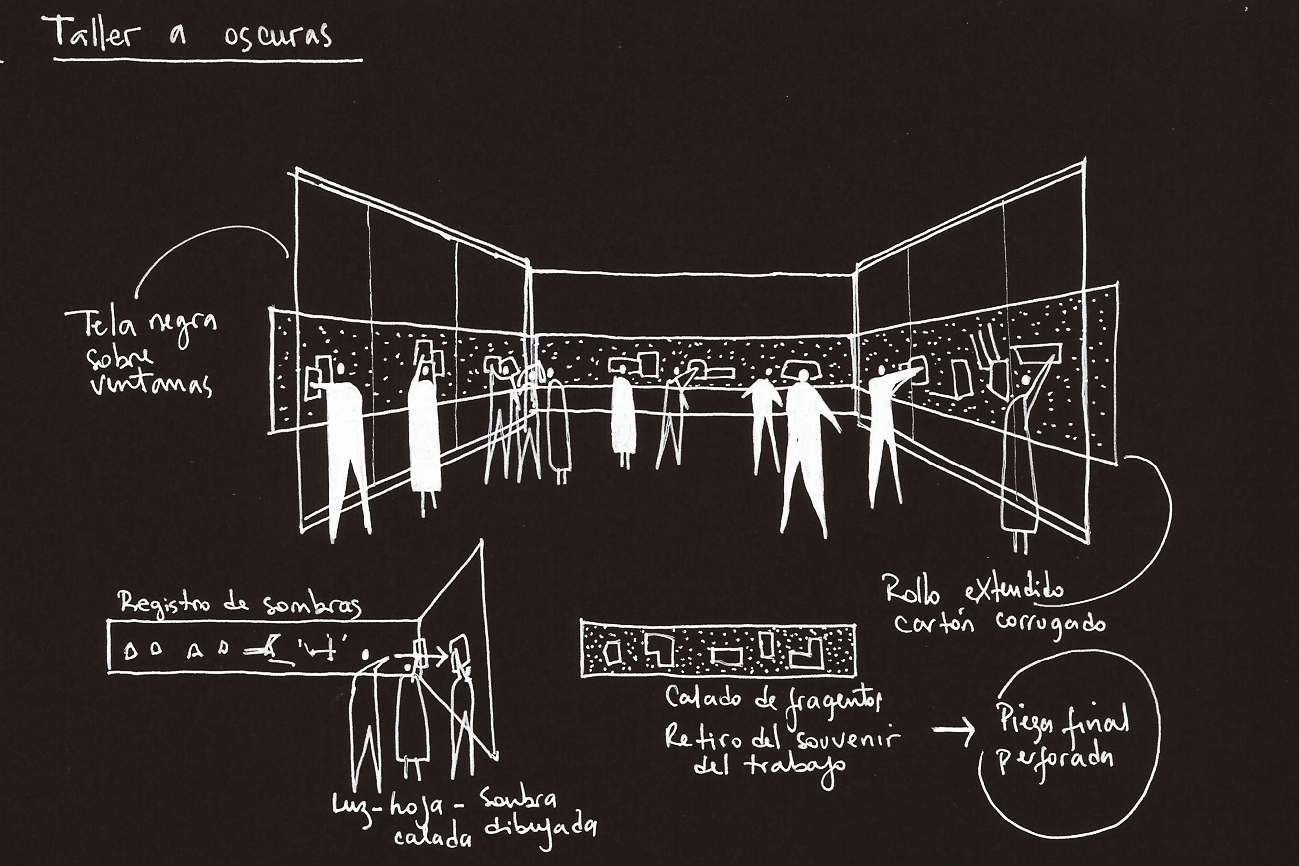 Taller a oscuras
Tela negra
sobre
ventanas
Rollo extendido
cartón corrugado
Registro de sombras
Luz - hoja - sombra
calada dibujada
Calado de fragentos
Retiro del souvenir
del trabajo
Pieza final
perforada